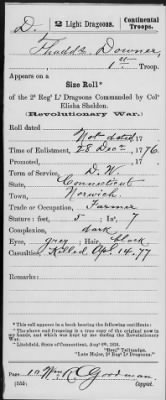 D. 2 Light Dragoons. Continental Troops.
Thadds. Downer,
1st Troop.
Appears on a
Size Roll*
of the 2d Reg't L't Dragoons Commanded by Col'
Elisha Sheldon.
(Revolutionary War.)
Roll dated
Not dated, 17
Time of Enlistment, 28 Dec. 1776.
Promoted, 17
Term of Service, D. W.
State, Connecticut
Town, Norwich.
Trade or Occupation, Farmer
Stature: feet, 5 In's, 7
Complexion, dark
Eyes, grey; Hair, black
Casualties, Killed Apl. 14. 77
Remarks:
*This roll appears in a book bearing the following certificate:
"The above and foregoing is a true copy of the original now in my hands, and which was kept by me during the Revolutionary War.
Litchfield, State of Connecticut, Aug't 8th, 1828.
"Benj' Tallmadge,
"Late Major, 2d Reg' L' Dragoons."
Wm. R. Goodman
(555) Copyist.